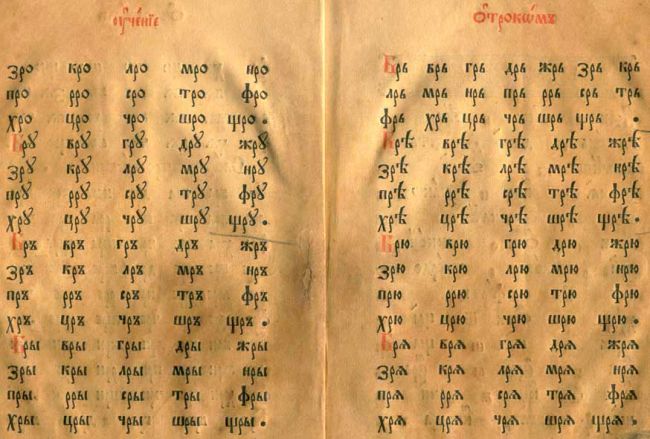 ᲂу҆че́нїе
Зро кро лро мро нро
про рро сро тро фро
хро цро чро шро щро.
Брꙋ врꙋ грꙋ дрꙋ жрꙋ
Зрꙋ крꙋ лрꙋ мрꙋ нрꙋ
прꙋ ррꙋ срꙋ трꙋ фрꙋ
хрꙋ црꙋ чрꙋ шрꙋ щрꙋ.
Бръ връ гръ дръ жръ
Зръ кръ лръ мръ нръ
пръ рръ сръ тръ фръ
хръ цръ чръ шръ щръ.
Бры вры гры дры жры
Зры кры лры мры нры
пры рры сры тры фры
хры цры чры шры щры.
Ѻ҆трокѡ́мъ
Брь врь грь дрь жрь Зрь крь
лрь мрь нрь прь ррь срь трь
фрь хрь црь чрь шрь щрь.
Брѣ врѣ грѣ дрѣ жрѣ
Зрѣ крѣ лрѣ мрѣ нрѣ
прѣ ррѣ срѣ трѣ фрѣ
хрѣ црѣ чрѣ шрѣ щрѣ.
Брю врю грю дрю жрю
Зрю крю лрю мрю нрю
прю ррю срю трю фрю
хрю црю чрю шрю щрю.
Брѧ врѧ грѧ дрѧ жрѧ
Зрѧ крѧ лрѧ мрѧ нрѧ
прѧ ррѧ срѧ трѧ фрѧ
хрѧ црѧ чрѧ шрѧ щрѧ.